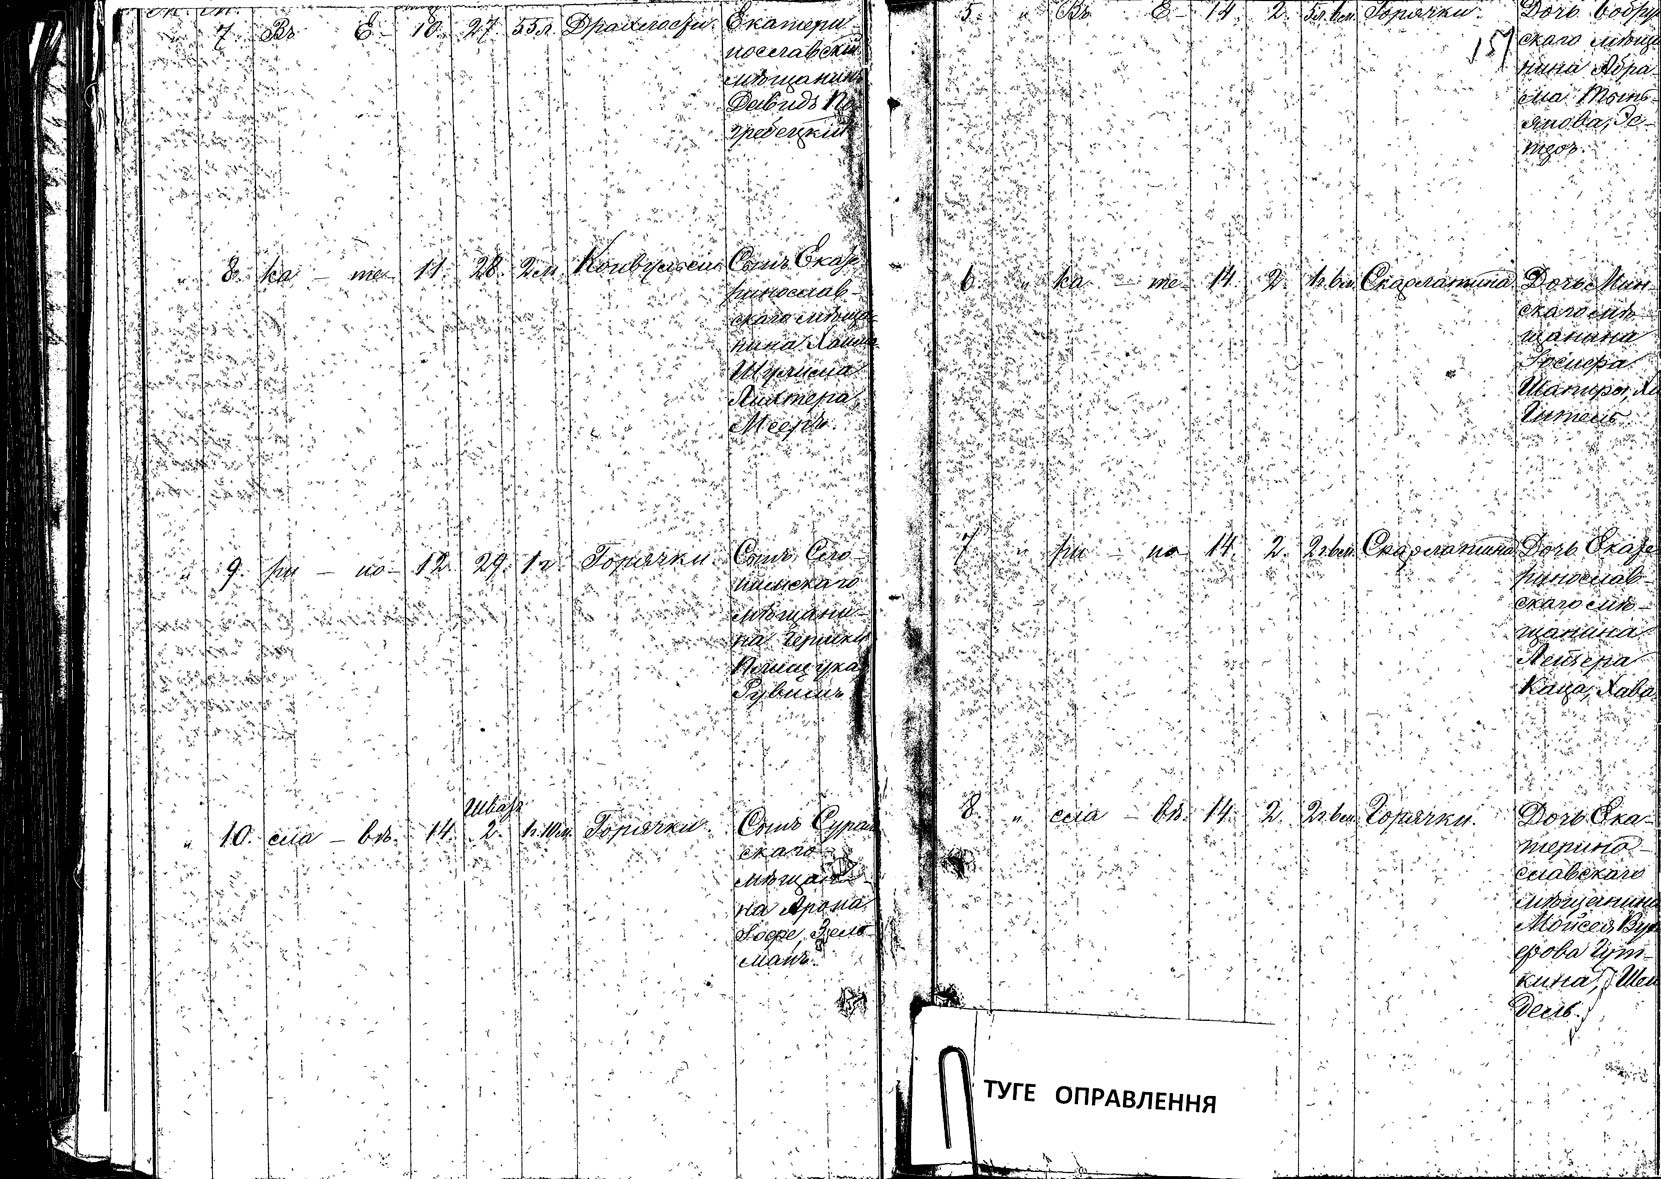 7 Въ Е 10. 27. 55 л. Дряхлости. Екатери-
нославскій
мѣщанинъ
Давидъ По-
гребецкій
8. ка - те 11. 28. 2 м. Конвульсіи Сынъ Екате-
ринослав-
скаго мѣща-
нина Хаима
Шулима
Лихтера,
Мееръ.
9. ри - но 12. 29. 1 г. Горячки. Сынъ Сло-
нимскаго
мѣщани-
на Гершки
Полищука
Рувимъ
10. сла - вѣ. 14. 2. 1 г. 10 м. Горячки. Сынъ Сураж
скаго
мѣщани-
на Арона
Іофе, Зель-
манъ.
5. Въ Е 14. 2. 5 л. 6 м. Горячки. Дочь Бобруй
157
скаго мѣща
нина Абра-
ма
6. ка - те 14. 2. 1 г. 6 м. Скарлатина Дочь Мин-
скаго мѣ-
щанина
Іосифа
Шапиры,
Гитель.
7 ри - но 14. 2. 2 г. 6 м. Скарлатина Дочь Екате-
ринослав-
скаго мѣ-
щанина
Лейзера
Каца, Хава.
8. сла - вѣ. 14. 2. 2 г. 6 м. Горячки. Дочь Ека-
терино-
славскаго
мѣщанина
Мойсея Вуль
фова Гут-
кина, Шей
дель.
ТУГЕ ОПРАВЛЕННЯ